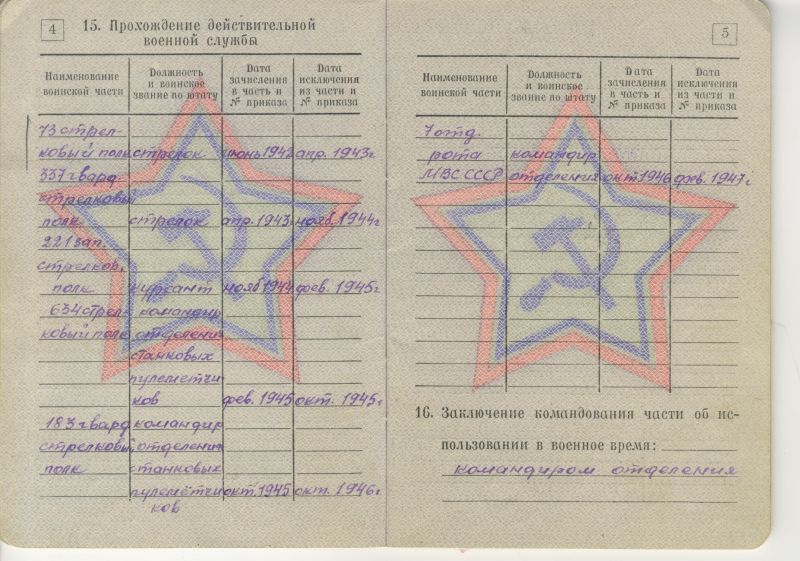 4
15. Прохождение действительной
военной службы
Наименование воинской части
Должность и воинское звание по штату
Дата зачисления в часть и № приказа
Дата исключения из части и № приказа
73 стрел-
ковый полк стрелок июнь 1942 апр. 1943г
337 гвард.
стрелковый
полк стрелок апр. 1943 нояб. 1944г
221 зап.
стрелков.
полк курсант нояб 1944 фев. 1945г
634 стрел- командир
ковый полк отделения
станковых
пулеметчи-
ков фев. 1945 окт. 1945г
183 гвард командир
стрелковый отделения
полк станковых
пулемётчи окт. 1945 окт. 1946г
ков
5
Наименование воинской части
Должность и воинское звание по штату
Дата зачисления в часть и № приказа
Дата исключения из части и № приказа
7 отд.
рота командир
МВС СССР отделения окт 1946 фев. 1947г
16. Заключение командования части об ис-
пользовании в военное время:
командиром отделения